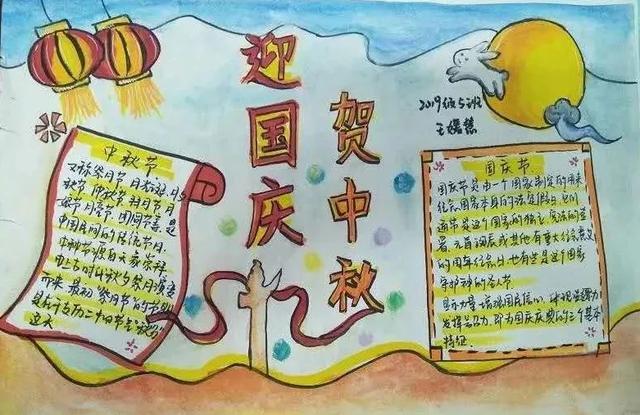 迎国庆
贺中秋
2019级5班
中秋节
又称祭月节、月
秋节、仲秋节、拜月节、月
节、月亮节、团圆节等、是
中国民间的传统节日。
中秋节源自天象崇拜
由上古时代秋夕祭月演变
而来。最初"祭月节"的节期
是在干支历二十四节气"秋分"
这天
国庆节
国庆节是由一个国家制定的用来
纪念国家本身的法定假日。它们
通常是这个国家的独立、宪法的签
署、元首诞辰或其他有重大纪念意义
的周年纪念日、也有些是这个国家
守护神的圣人节。
显示力量、增强国民信心、体现凝聚力
发挥号召力、即为国庆庆典的三个基本
特征